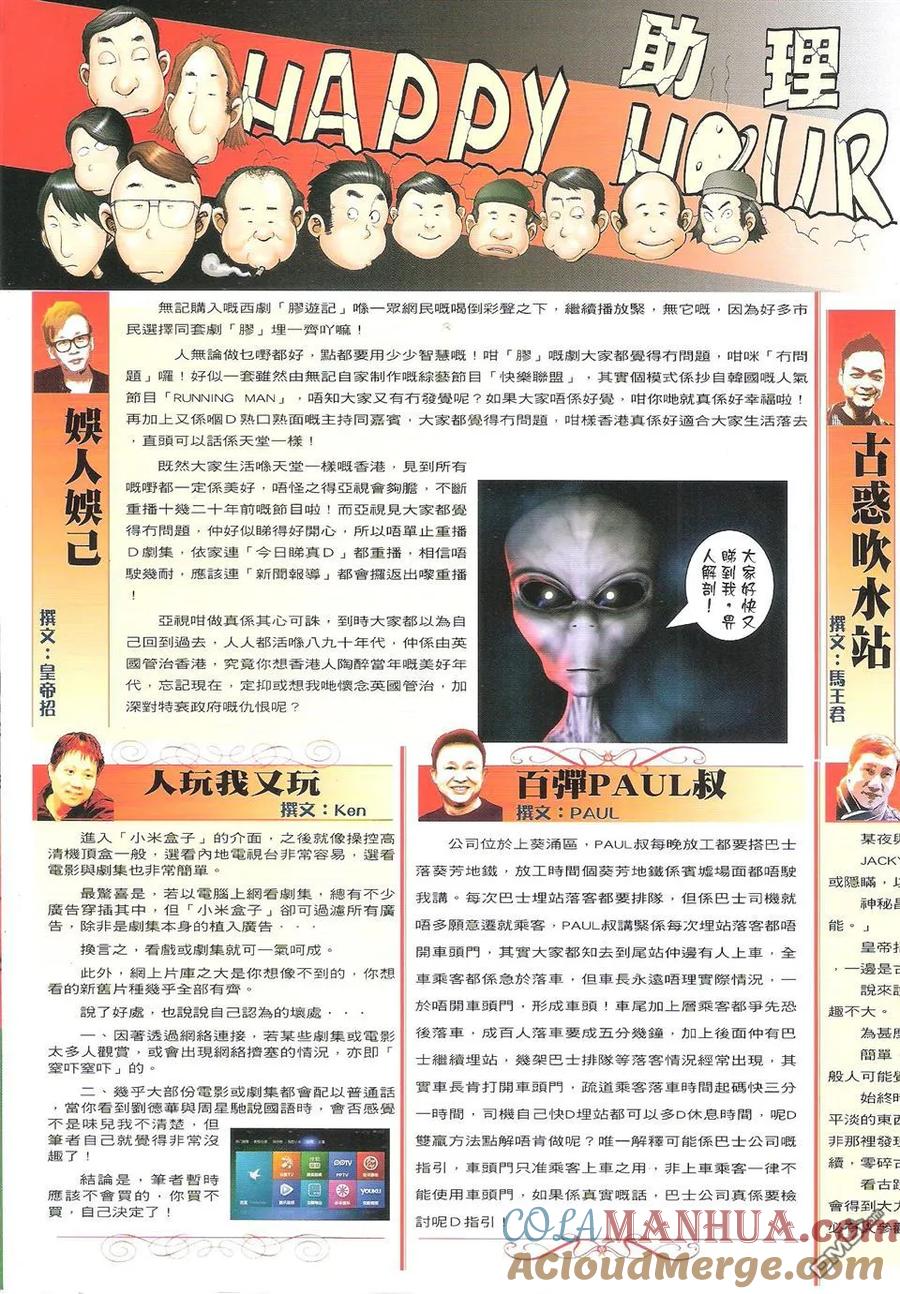 HAPPY 助理
HOUR
娛人娛己
撰文：皇帝招
無記購入嘅西劇「膠遊記」喺一眾網民嘅喝倒彩聲之下，繼續播放緊，無它嘅，因為好多市
民選擇同套劇「膠」埋一齊吖嘛！
人無論做乜嘢都好，點都要用少少智慧嘅！咁「膠」嘅劇大家都覺得冇問題，咁咪「冇問
題」囉！好似一套雖然由無記自家制作嘅綜藝節目「快樂聯盟」，其實個模式係抄自韓國嘅人氣
節目「RUNNING MAN」，唔知大家又有冇發覺呢？如果大家唔係好覺，咁你哋就真係好幸福啦！
再加上又係嗰D熟口熟面嘅主持同嘉賓，大家都覺得冇問題，咁樣香港真係好適合大家生活落去
，直頭可以話係天堂一樣！
既然大家生活喺天堂一樣嘅香港，見到所有
嘅嘢都一定係美好，唔怪之得亞視會夠膽，不斷
重播十幾二十年前嘅節目啦！而亞視見大家都覺
得冇問題，仲好似睇得好開心，所以唔單止重播
D劇集，依家連「今日睇真D」都重播，相信唔
駛幾耐，應該連「新聞報導」都會攞返出嚟重播
！
亞視咁做真係其心可誅，到時大家都以為自
己回到過去，人人都活喺八九十年代，仲係由英
國管治香港，究竟你想香港人陶醉當年嘅美好年
代，忘記現在，定抑或想我哋懷念英國管治，加
深對特衰政府嘅仇恨呢？
大家好快又
睇到我，畀
人解剖！
古惑吹水站
撰文：馬王君
人玩我又玩
撰文：Ken
進入「小米盒子」的介面，之後就像操控高
清機頂盒一般，選看內地電視台非常容易，選看
電影與劇集也非常簡單。
最驚喜是，若以電腦上網看劇集，總有不少
廣告穿插其中，但「小米盒子」卻可過濾所有廣
告，除非是劇集本身的植入廣告．．．
換言之，看戲或劇集就可一氣呵成。
此外，網上片庫之大是你想像不到的，你想
看的新舊片種幾乎全部有齊。
說了好處，也說說自己認為的壞處．．．
一、因著透過網絡連接，若某些劇集或電影
太多人觀賞，或會出現網絡擠塞的情況，亦即「
窒吓窒吓」的。
二、幾乎大部份電影或劇集都會配以普通話
，當你看到劉德華與周星馳說國語時，會否感覺
不是味兒我不清楚，但
筆者自己就覺得非常沒
趣了！
結論是，筆者暫時
應該不會買的，你買不
買，自己決定了！
PPTV
YOUKU
百彈PAUL叔
撰文：PAUL
公司位於上葵涌區，PAUL叔每晚放工都要搭巴士
落葵芳地鐵，放工時間個葵芳地鐵係賓墟場面都唔駛
我講。每次巴士埋站落客都要排隊，但係巴士司機就
唔多願意遷就乘客，PAUL叔講緊係每次埋站落客都唔
開車頭門，其實大家都知去到尾站仲邊有人上車，全
車乘客都係急於落車，但車長永遠唔理實際情況，一
於唔開車頭門，形成車頭！車尾加上層乘客都爭先恐
後落車，成百人落車要成五分幾鐘，加上後面仲有巴
士繼續埋站，幾架巴士排隊等落客情況經常出現，其
實車長肯打開車頭門，疏道乘客落車時間起碼快三分
一時間，司機自己快D埋站都可以多D休息時間，呢D
雙贏方法點解唔肯做呢？唯一解釋可能係巴士公司嘅
指引，車頭門只准乘客上車之用，非上車乘客一律不
能使用車頭門，如果係真實嘅話，巴士公司真係要檢
討呢D指引！
某夜與
JACKY
或隱瞞，以
神秘昌
能。」
皇帝招
，一邊是古
說來說
趣不大。
為甚麼
簡單，
般人可能覺
始終時
平淡的東西
非那裡發現
續，零碎古
看古蹟
會得到大大
必有人參觀
COLAMANHUA.COM
AcloudMerge.com